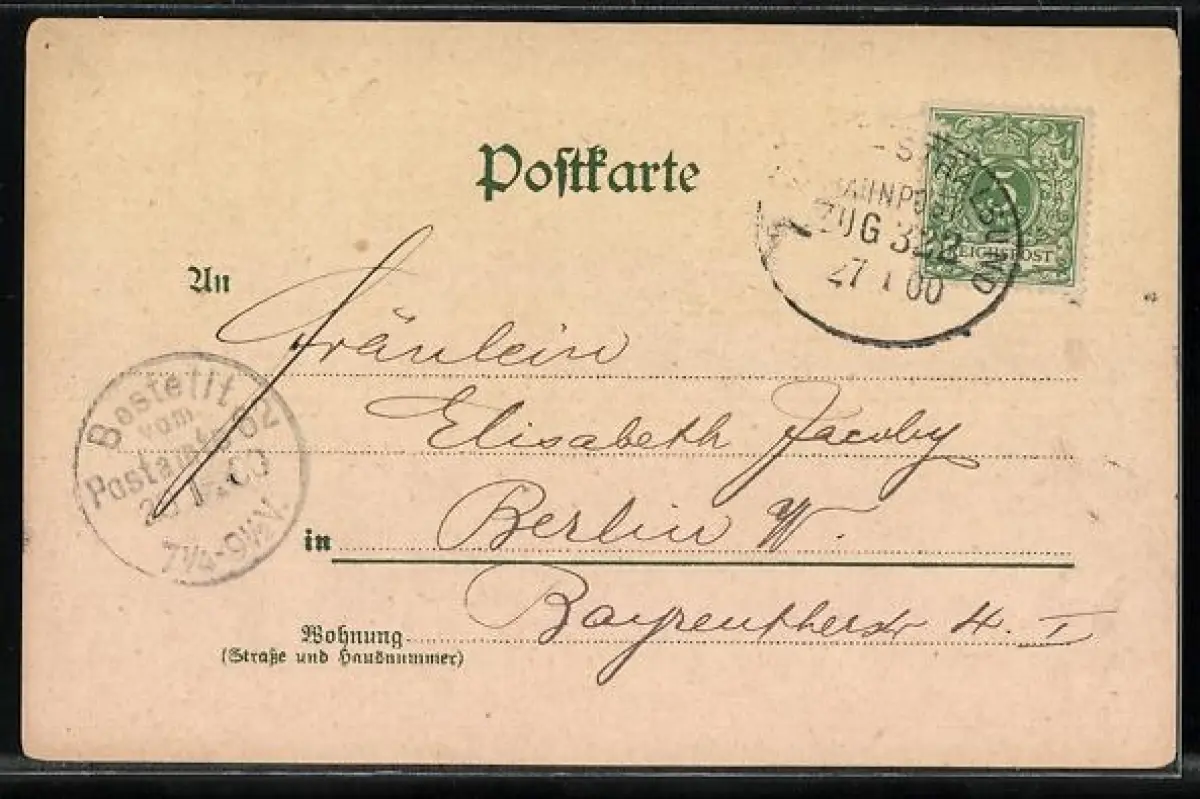 Postkarte
STRALSUND
BAHNPOST
ZUG 322
27 1 00
5
REICHSPOST
An
Fräulein
Elisabeth Jacoby
in Berlin W.
Wohnung Bayreutherstr 4. I
(Straße und Hausnummer)
Bestellt
vom
Postamte 62
1 00
7¼-9½V.